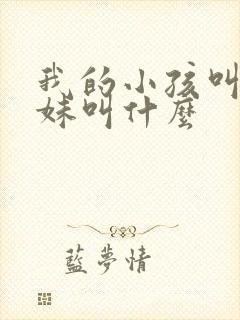 我的小孩叫
妹叫什麼
藍夢情